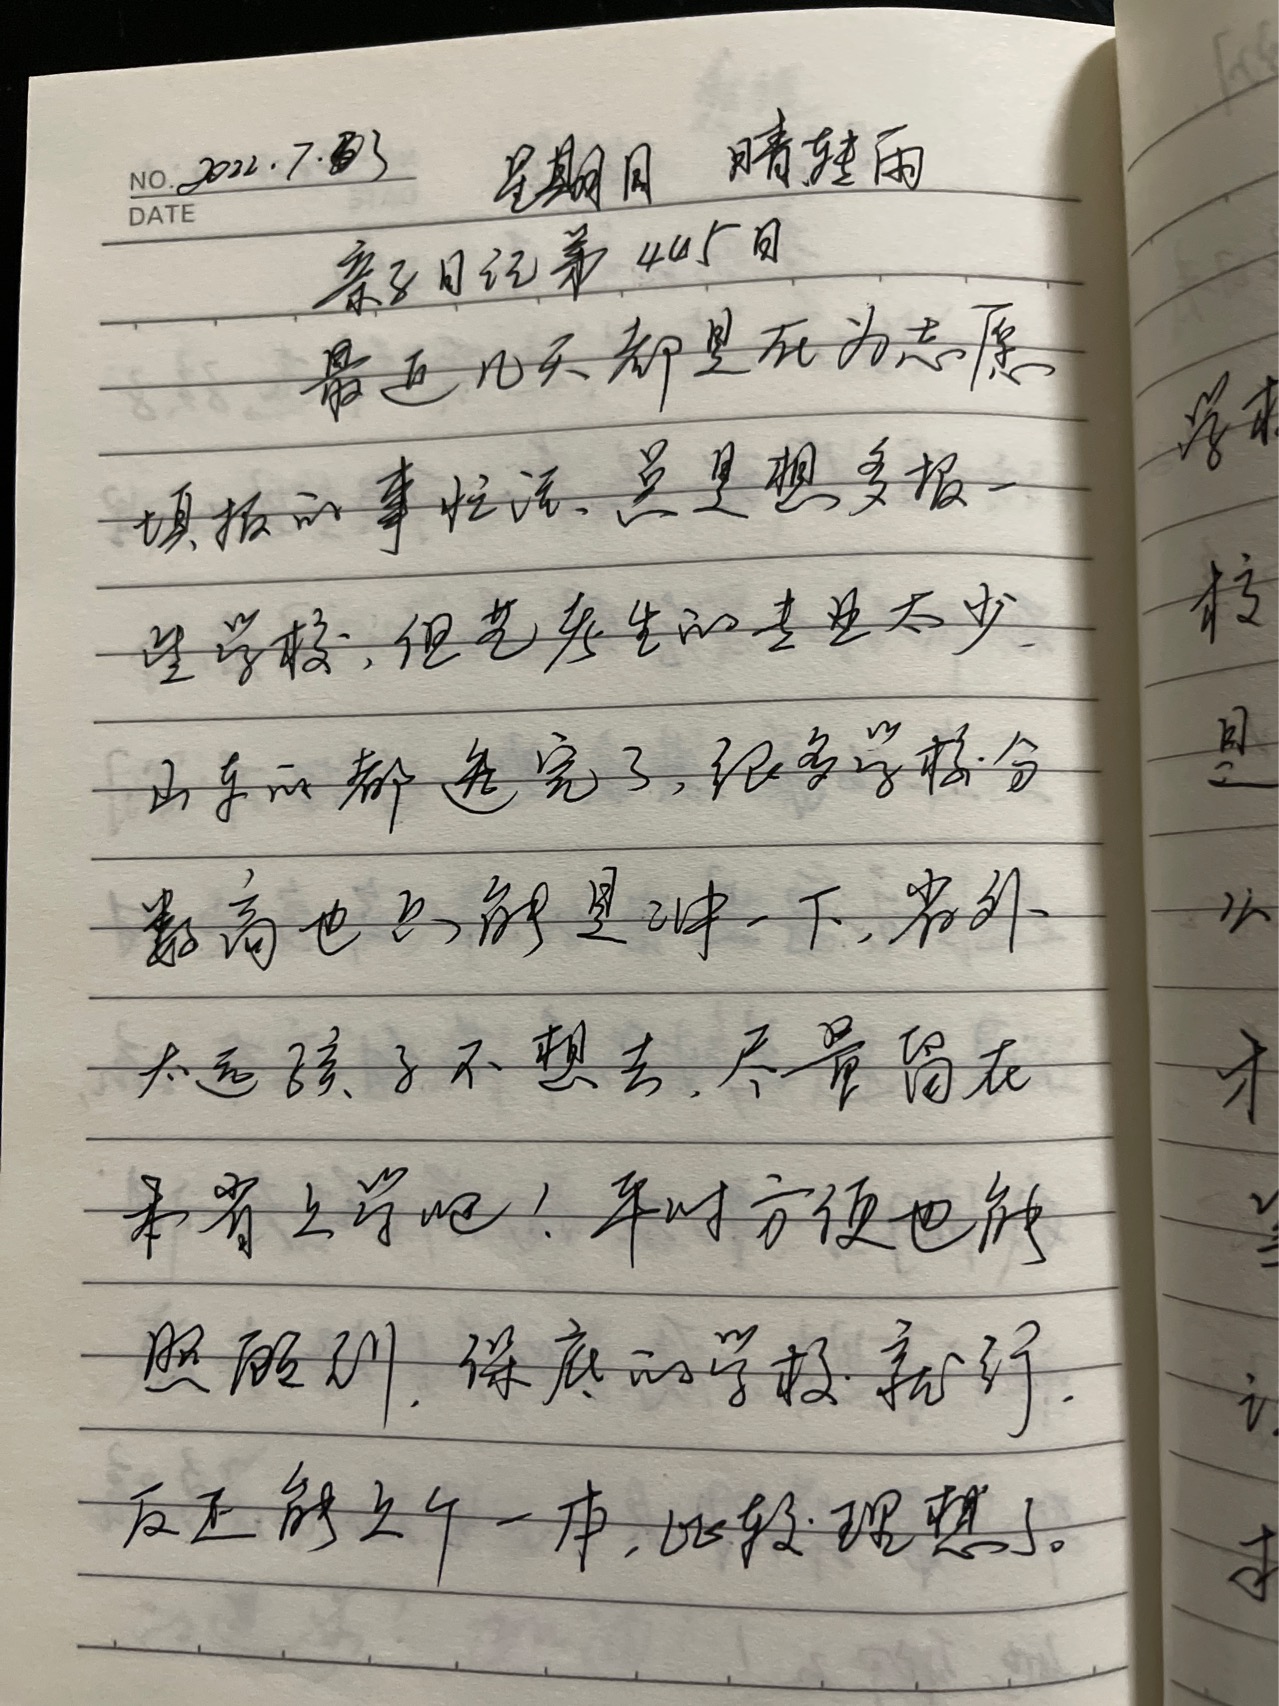 NO. 2022.7.3 星期日 晴转雨
DATE
亲子日记第445日
最近几天都是在为志愿
填报的事忙活、总是想多报一
些学校,但艺考生的专业太少.
山东的都选完了,很多学校分
数高也只能是冲一下,省外
太远孩子不想去,尽量留在
本省上学吧!平时方便也能
照顾到,保底的学校就行.
反正能上个一本,比较理想了。
学校
校
是
以
才